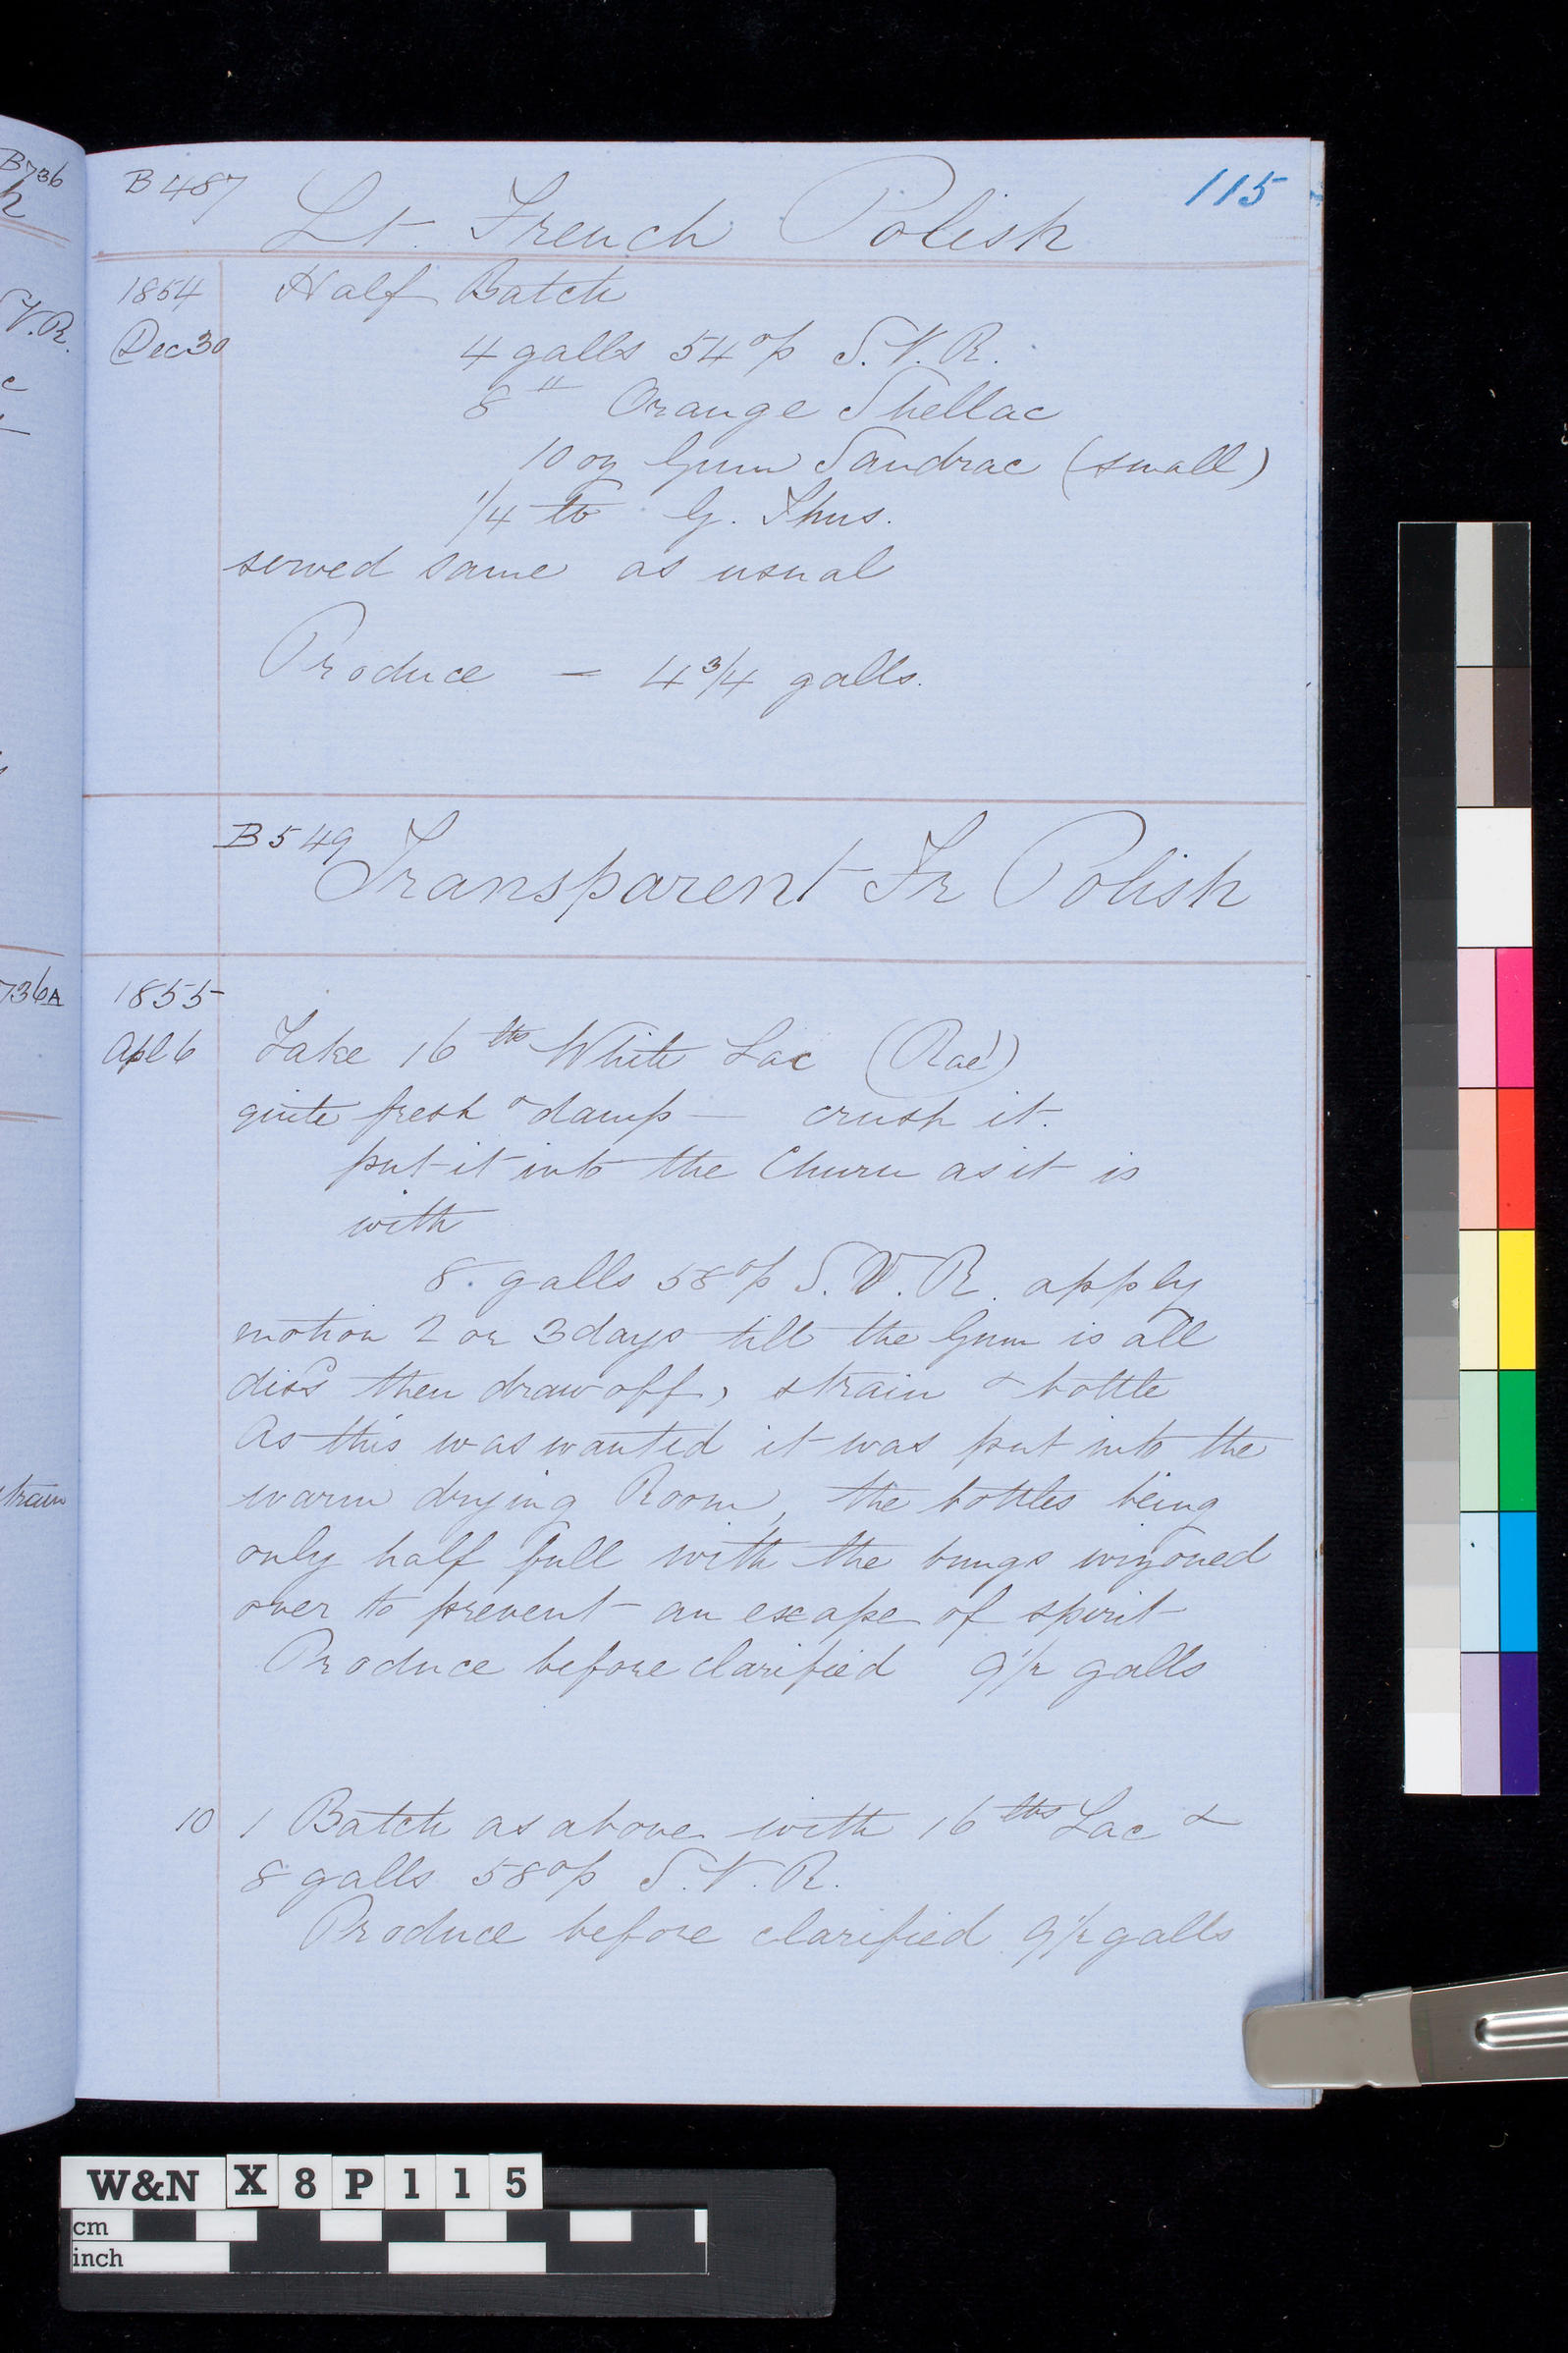 B736
h
V.R.
c
736A
strain
B487
115
Lt. French Polish
1854
Half Batch
Dec 30
4 galls 54 o/p S.V.R.
8 " Orange Shellac
10 oz Gum Sandrac (small)
1/4 lb G. Thus.
served same as usual
Produce = 4 3/4 galls.
B549
Transparent Fr Polish
1855
Apl 6
Take 16 lbs White Lac (Rae)
quite fresh & damp — crush it.
put it into the Churn as it is
with
8 galls 58 o/p S.V.R. apply
motion 2 or 3 days till the Gum is all
diss^d then draw off, strain & bottle
As this was wanted it was put into the
warm drying Room, the bottles being
only half full with the bungs
over to prevent an escape of spirit
Produce before clarified 9 1/2 galls
10
1 Batch as above with 16 lbs Lac &
8 galls 58 o/p S.V.R.
Produce before clarified 9 1/2 galls
W&N X 8 P 1 1 5
cm
inch